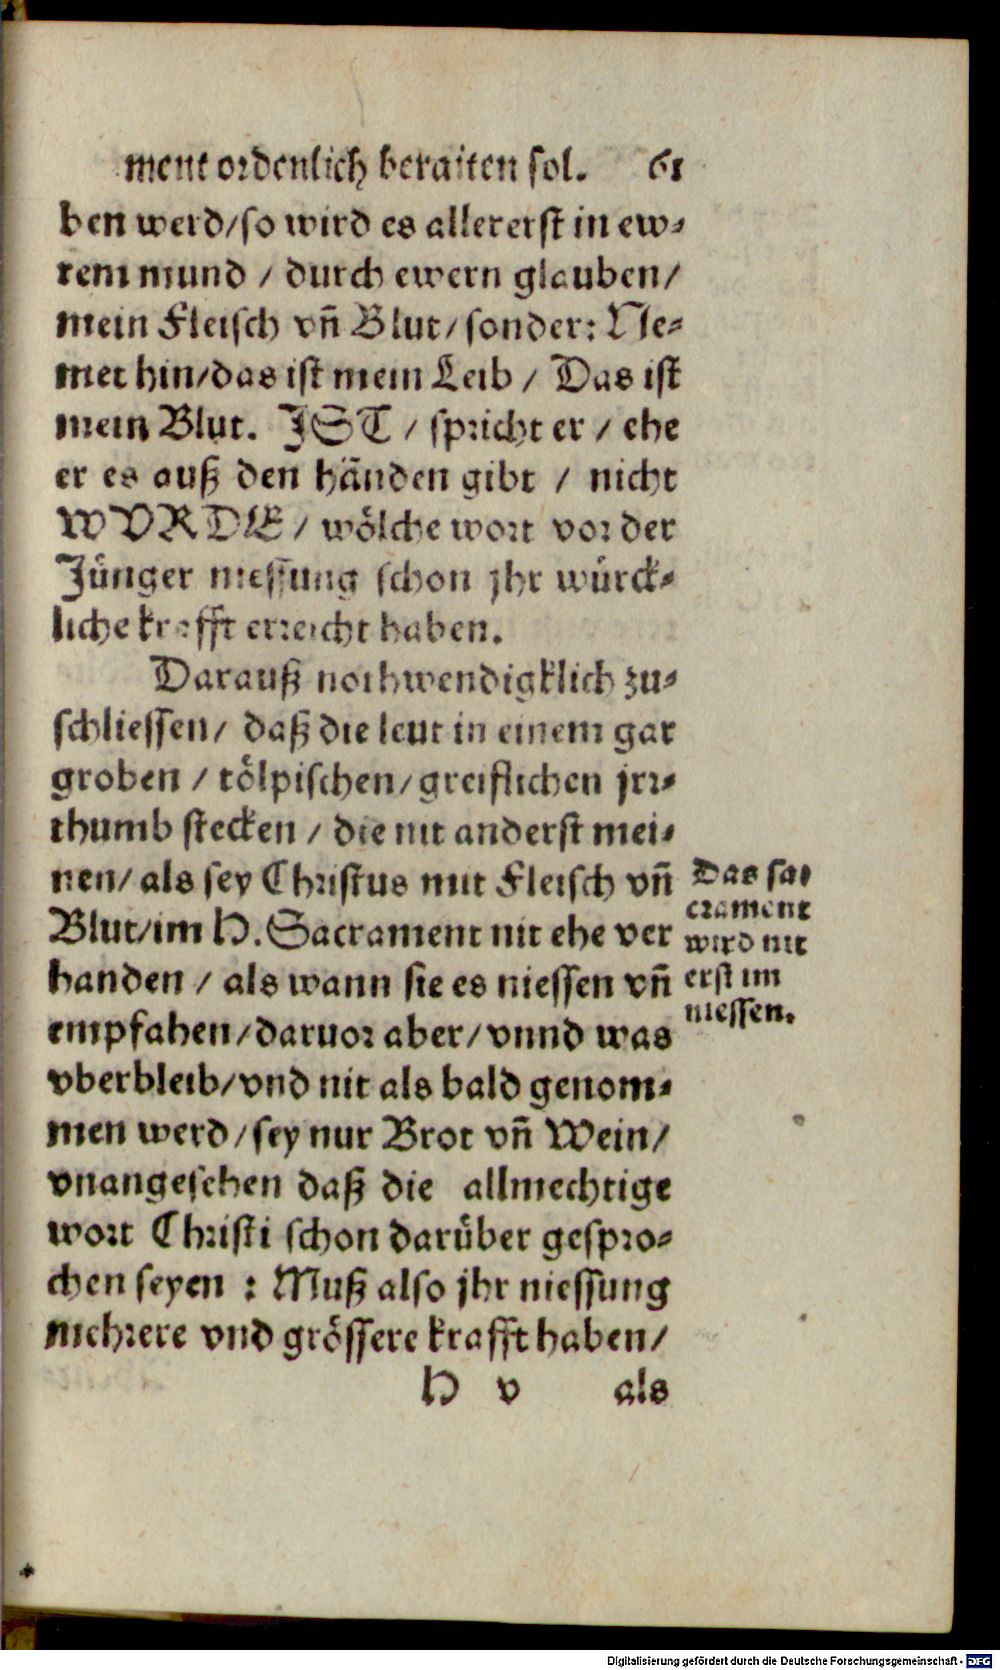 ment ordenlich beraiten sol. 61
ben werd/so wird es allererst in ew⸗
rem mund / durch ewern glauben/
mein Fleisch vñ Blut/sonder: Ne⸗
met hin/das ist mein Leib / Das ist
mein Blut. IST / spricht er / ehe
er es auß den händen gibt / nicht
WVRDE / wölche wort vor der
Jünger niessung schon jhr würck⸗
liche krafft erreicht haben.
Darauß nothwendigklich zu⸗
schliessen/ daß die leut in einem gar
groben / tölpischen/greiflichen jrr⸗
thumb stecken / die nit anderst mei⸗
nen/ als sey Christus mit Fleisch vñ
Blut/im H. Sacrament nit ehe ver
handen / als wann sie es niessen vñ
empfahen/daruor aber/vnnd was
vberbleib/vnd nit als bald genom⸗
men werd/sey nur Brot vñ Wein/
vnangesehen daß die allmechtige
wort Christi schon darüber gespro⸗
chen seyen : Muß also jhr niessung
mehrere vnd grössere krafft haben/
H v als
Das sa⸗
crament
wird nit
erst im
niessen.
Digitalisierung gefördert durch die Deutsche Forschungsgemeinschaft - DFG